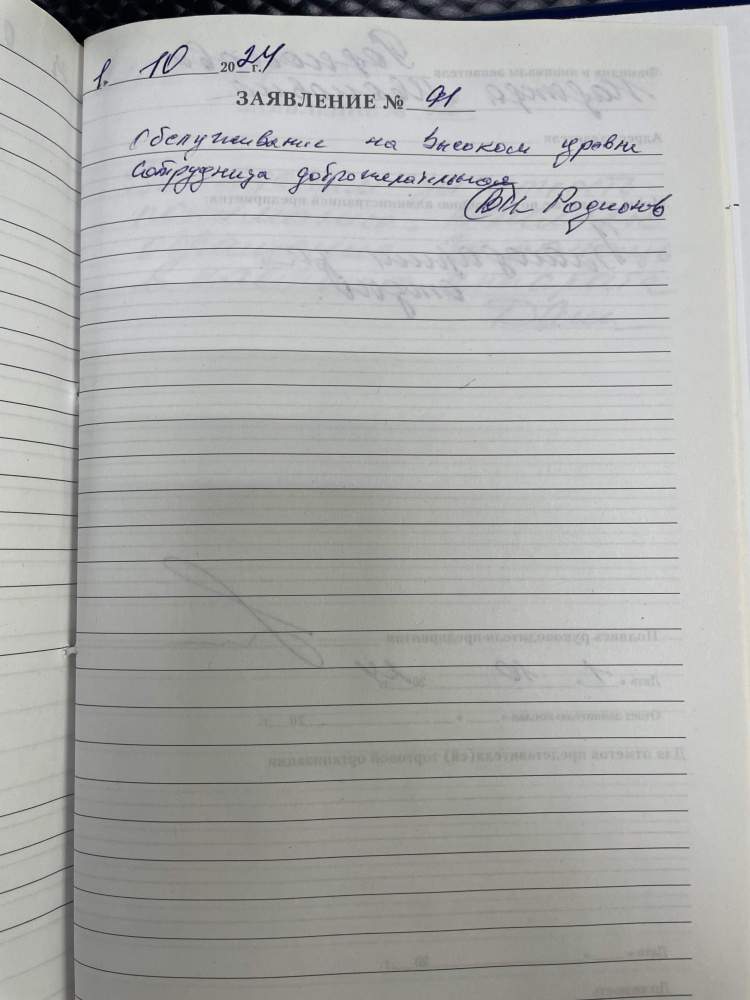 1. 10 2024 г.
ЗАЯВЛЕНИЕ № 91
Обслуживание на высоком уравне
Сотрудница доброжелательная
Родионов